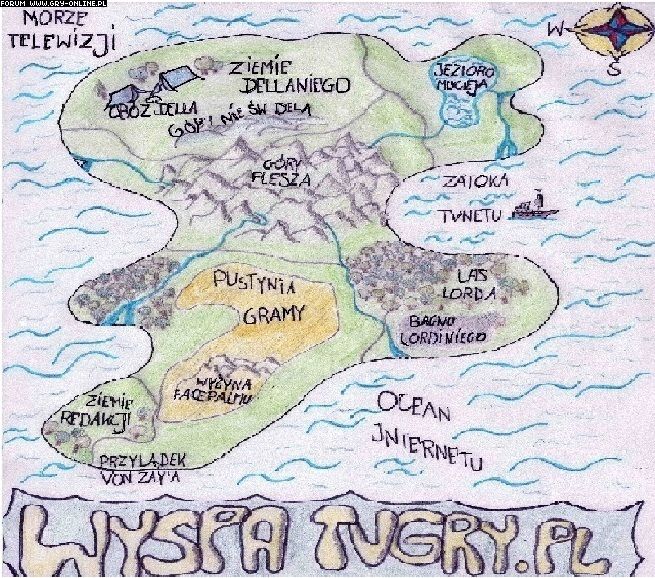 FORUM WWW.GRY-ONLINE.PL
MORZE
TELEWIZJI
W
S
ZIEMIE
DELLANIEGO
OBÓZ DELLA
JEZIORO
MUCIEJA
GÓRY
PLESZA
ZATOKA
TVNETU
PUSTYNIA
GRAMY
LAS
LORDA
BAGNO
LORDINIEGO
WYŻYNA
FACEPALMU
ZIEMIE
REDAKCJI
PRZYLĄDEK
VON ZAY'A
OCEAN
JNTERNETU
WYSPA TVGRY.PL